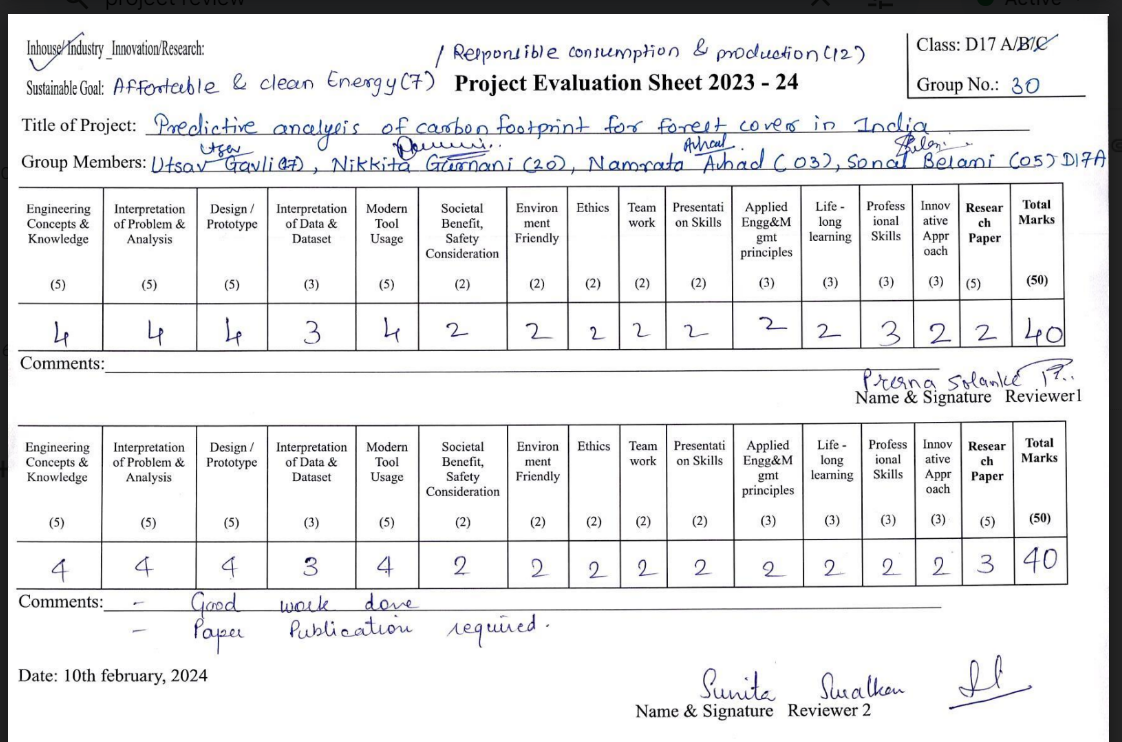 Inhouse/Industry_Innovation/Research:
/ Responsible consumption & production (12)
Class: D17 A/B/C
Sustainable Goal: Affortable & clean Energy (7)
Project Evaluation Sheet 2023 - 24
Group No.: 30
Title of Project: Predictive analysis of carbon footprint for forest cover in India
Utsav Arhad
Group Members: Utsav Gavli (17), Nikkita Gurnani (20), Namrata Arhad (03), Sonal Belani (05) D17A
Engineering Concepts & Knowledge (5) Interpretation of Problem & Analysis (5) Design / Prototype (5) Interpretation of Data & Dataset (3) Modern Tool Usage (5) Societal Benefit, Safety Consideration (2) Environ ment Friendly (2) Ethics (2) Team work (2) Presentati on Skills (2) Applied Engg&M gmt principles (3) Life - long learning (3) Profess ional Skills (3) Innov ative Appr oach (3) Resear ch Paper (5) Total Marks (50)
4 4 4 3 4 2 2 2 2 2 2 2 3 2 2 40
Comments:
Prerna Solanke
Name & Signature Reviewer1
Engineering Concepts & Knowledge (5) Interpretation of Problem & Analysis (5) Design / Prototype (5) Interpretation of Data & Dataset (3) Modern Tool Usage (5) Societal Benefit, Safety Consideration (2) Environ ment Friendly (2) Ethics (2) Team work (2) Presentati on Skills (2) Applied Engg&M gmt principles (3) Life - long learning (3) Profess ional Skills (3) Innov ative Appr oach (3) Resear ch Paper (5) Total Marks (50)
4 4 4 3 4 2 2 2 2 2 2 2 2 2 3 40
Comments: - Good work done
- Paper Publication required.
Date: 10th february, 2024
Sunita
Name & Signature Reviewer 2